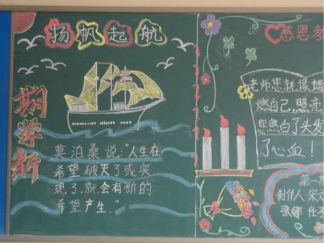 扬帆起航
新学期
莫泊桑说:"人生在
希望破灭了或实
现了,就会有新的
希望产生."
感恩老
老师您就像蜡
燃自己,照亮
您熬白了头发
了心血!
第一
制作人:宋
张娜